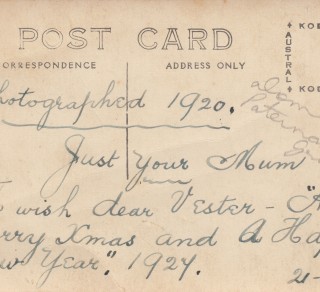 POST CARD
CORRESPONDENCE
ADDRESS ONLY
KOD
AUSTRAL
KOD
Photographed 1920.
Just Your Mum
wish dear Vester - "A
erry Xmas and A Hap
w Year". 1924.
21-